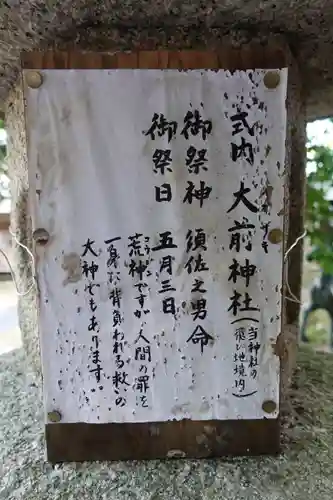 式内 大前神社(当神社の飛び地境内)
オザキ
御祭神 須佐之男命
御祭日 五月三日
荒神ですが人間の罪を
コウジン
一身に背負われる救いの
大神でもあります。